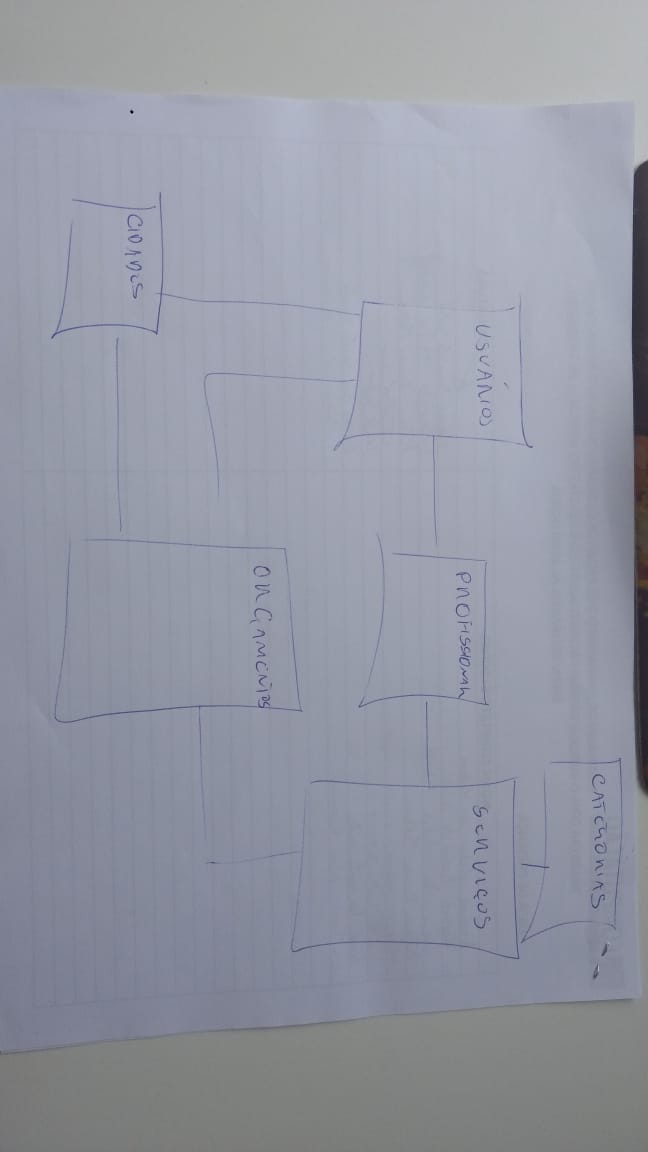 CATEGORIAS
USUÁRIOS
PROFISSIONAL
SERVIÇOS
ORÇAMENTOS
CIDADES